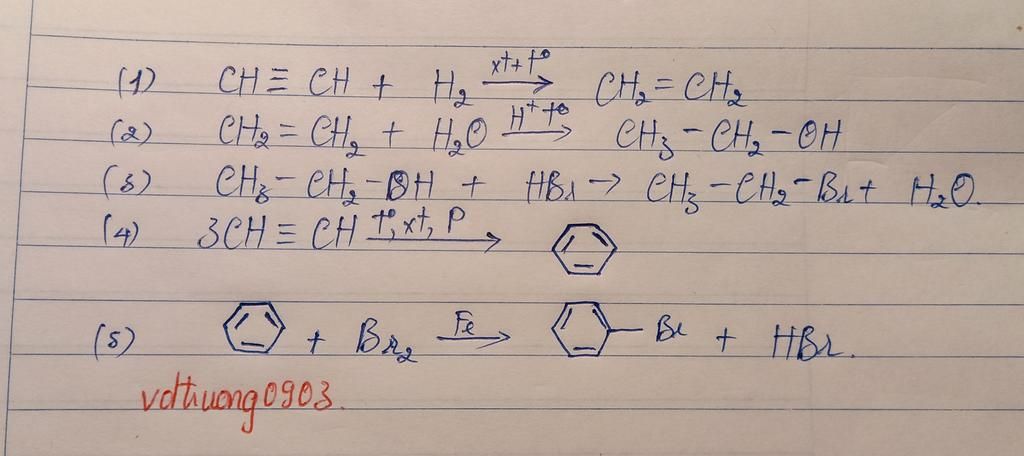 (1) CH ≡ CH + H₂ xt, t° → CH₂ = CH₂
(2) CH₂ = CH₂ + H₂O H⁺ t° → CH₃ – CH₂ – OH
(3) CH₃ – CH₂ – OH + HBr → CH₃ – CH₂ – Br + H₂O.
(4) 3CH ≡ CH t°, xt, P →
(5) + Br₂ Fe → – Br + HBr.
vdthuong0903.